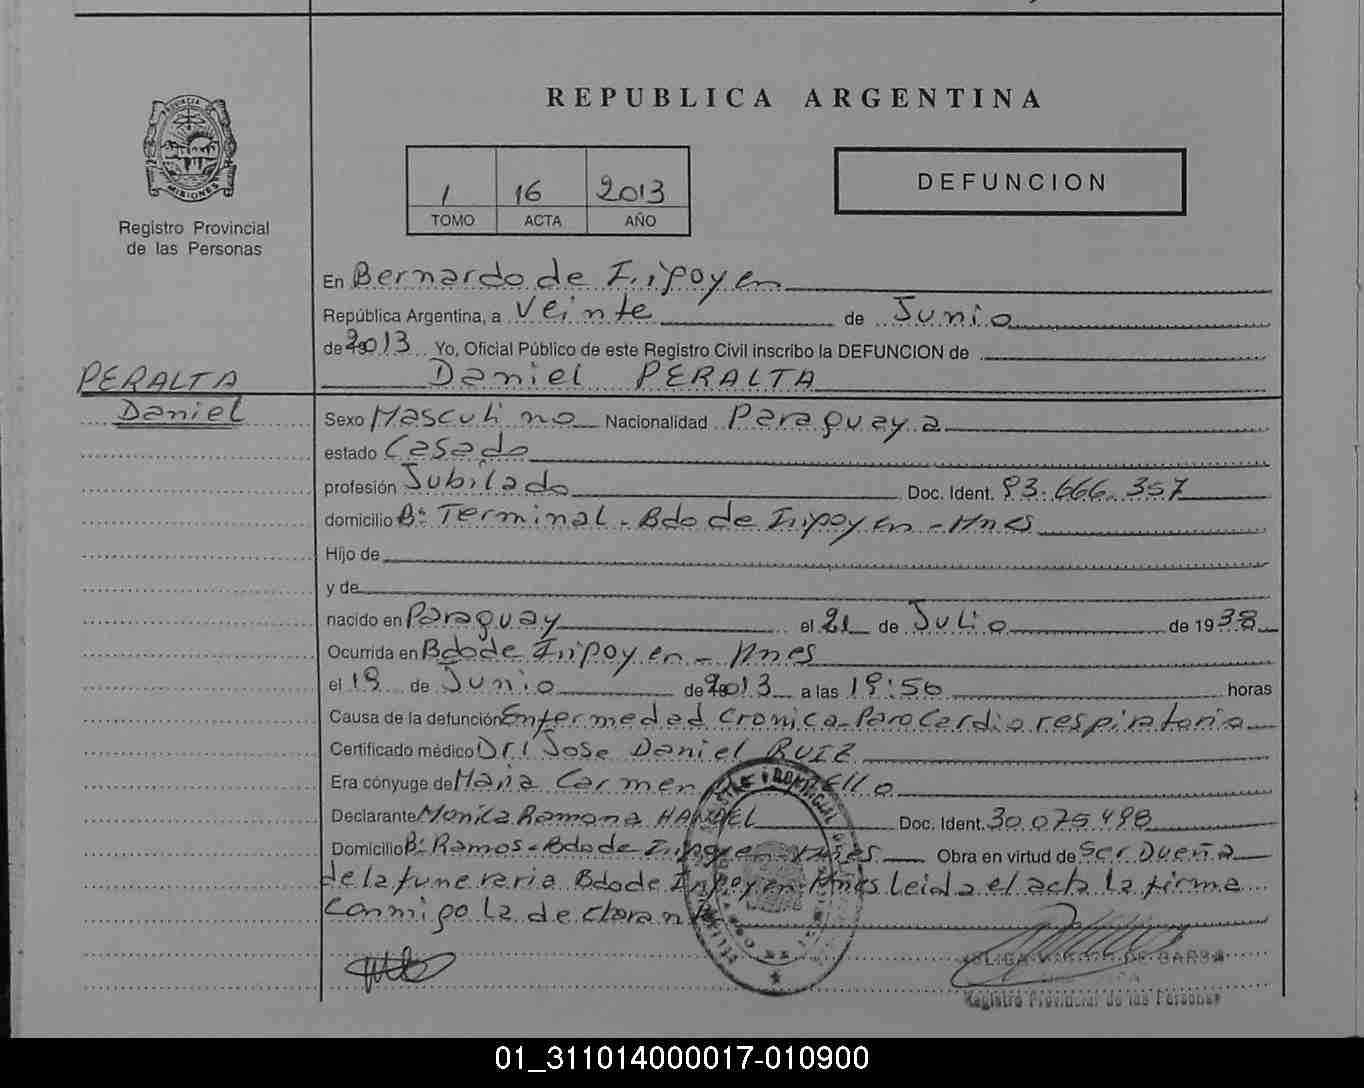 REPUBLICA ARGENTINA
1 16 2013
TOMO ACTA AÑO
DEFUNCION
MISIONES
Registro Provincial
de las Personas
En Bernardo de Irigoyen
República Argentina, a Veinte de Junio
de 2013 Yo, Oficial Público de este Registro Civil inscribo la DEFUNCION de
Daniel PERALTA
PERALTA
Daniel
Sexo Masculino Nacionalidad Paraguaya
estado Casado
profesión Jubilado Doc. Ident. 93.666.357
domicilio Bº Terminal - Bdo de Irigoyen - Mnes
Hijo de
y de
nacido en Paraguay el 21 de Julio de 1938
Ocurrida en Bdo de Irigoyen - Mnes
el 19 de Junio de 2013 a las 19:56 horas
Causa de la defunción Enfermedad Cronica - Paro Cardio respiratorio
Certificado médico Dr. Jose Daniel RUIZ
Era cónyuge de Maria Carmen
Declarante Monica Ramona Doc. Ident. 30.075.498
Domicilio Bº Ramos - Bdo de Irigoyen - Mnes Obra en virtud de Ser Dueña
de la funeraria Bdo de Irigoyen - Mnes Leida el acta la firma
conmigo la declarante
Registro Provincial de las Personas
01_311014000017-010900